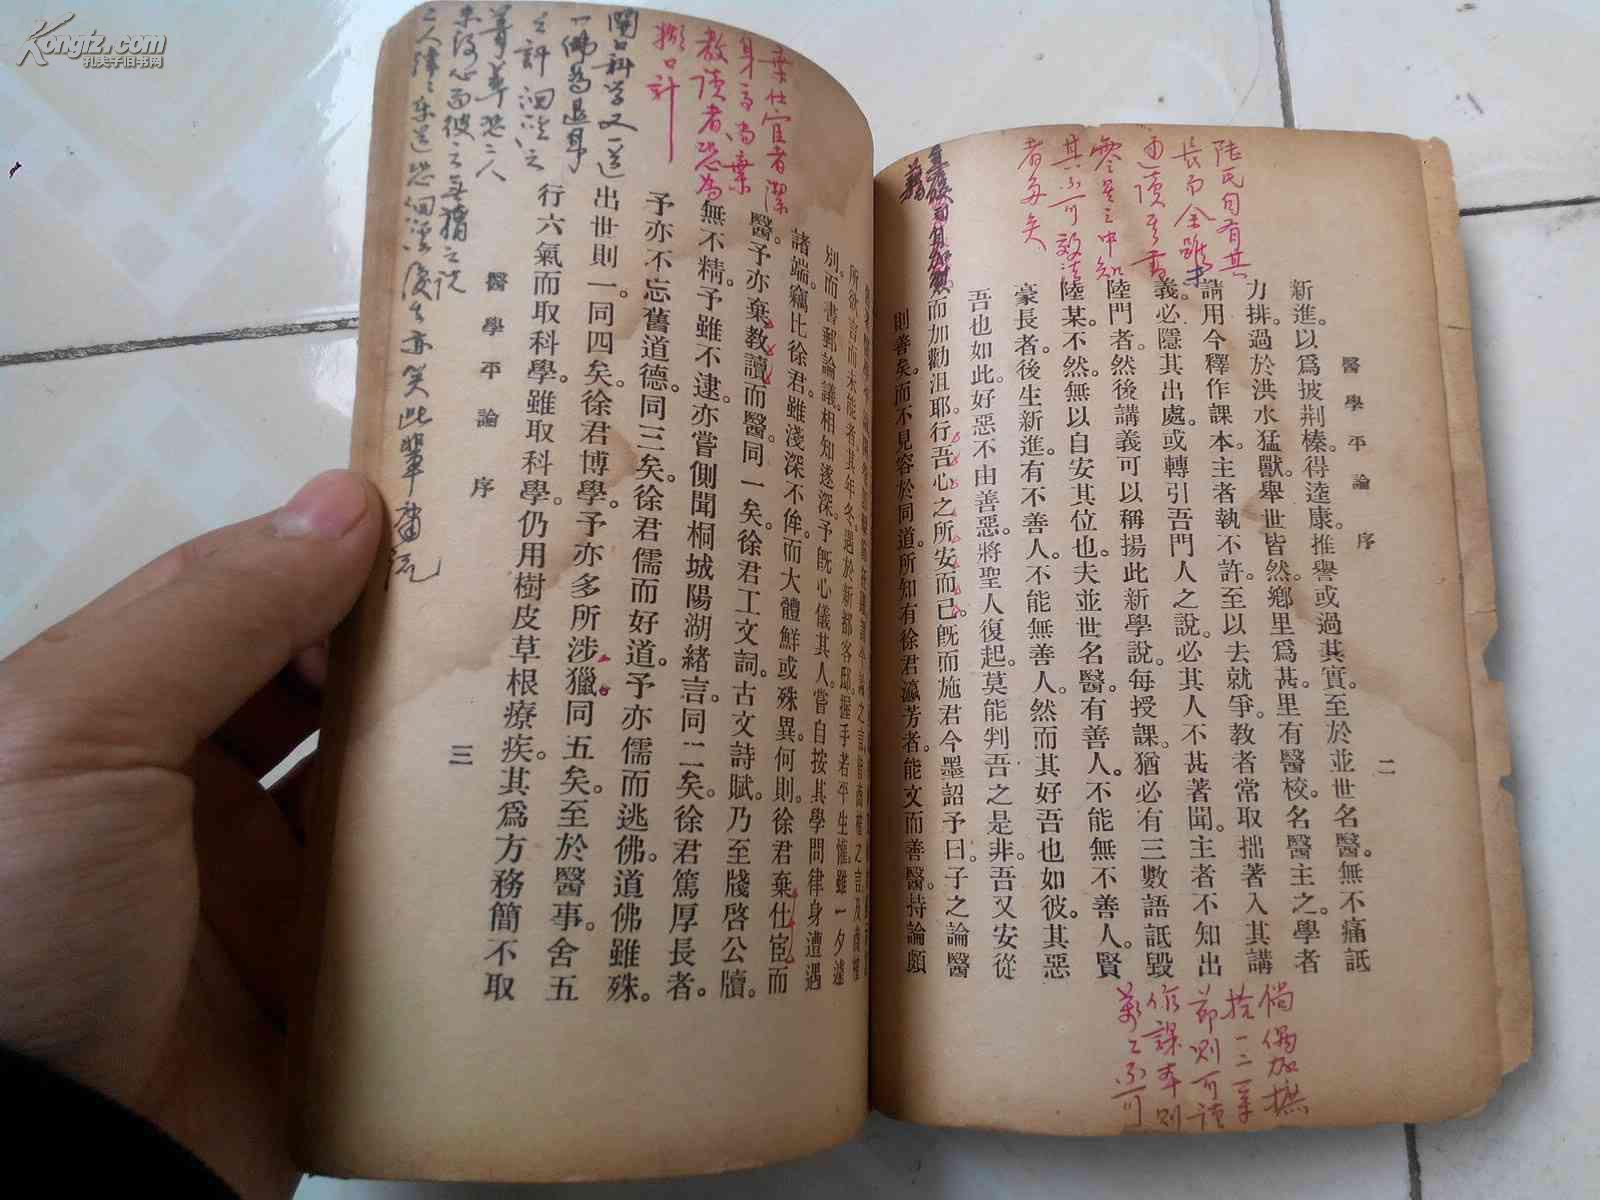 Kongfz.com
孔夫子旧书网
醫學平論 序
二
新進。以爲披荆榛。得逵康。推譽或過其實。至於並世名醫。無不痛詆
力排。過於洪水猛獸。舉世皆然。鄉里爲甚。里有醫校。名醫主之。學者
請用今釋作課本。主者執不許。至以去就爭。教者常取拙著入其講
義。必隱其出處。或轉引吾門人之說。必其人不甚著聞。主者不知出
陸門者。然後講義可以稱揚此新學說。每授課。猶必有三數語詆毀
陸某不然。無以自安其位也。夫並世名醫。有善人。不能無不善人。賢
豪長者。後生新進。有不善人。不能無善人。然而其好吾也如彼。其惡
吾也如此。好惡不由善惡。將聖人復起。莫能判吾之是非。吾又安從
而加勸沮耶。行吾心之所安而已。旣而施君今墨詔予曰。子之論醫
則善矣。而不見容於同道。所知有徐君瀛芳者。能文而善醫。持論頗
陸氏自有其
長而余雖未
者多矣
倘偶加撫
拾一二章
節則可讀
作課本則
萬々不可
所欲言而未能者。其年冬。遇於新都客邸。握手若平生懽。雖一夕遽
別。而書郵論議。相知遂深。予旣心儀其人。嘗自按其學問律身遭遇
諸端。竊比徐君。雖淺深不侔。而大體鮮或殊異。何則。徐君棄仕宦而
醫。予亦棄教讀而醫。同一矣。徐君工文詞。古文詩賦。乃至牋啓公牘。
無不精。予雖不逮。亦嘗側聞桐城陽湖緒言。同二矣。徐君篤厚長者。
予亦不忘舊道德。同三矣。徐君儒而好道。予亦儒而逃佛。道佛雖殊。
出世則一。同四矣。徐君博學。予亦多所涉獵。同五矣。至於醫事。舍五
行六氣而取科學。雖取科學。仍用樹皮草根療疾。其爲方務簡不取
醫學平論 序
三
棄仕宦者潔
身高尚棄
教讀者恐為
糊口計
開口科學又一道
一佛為退耳